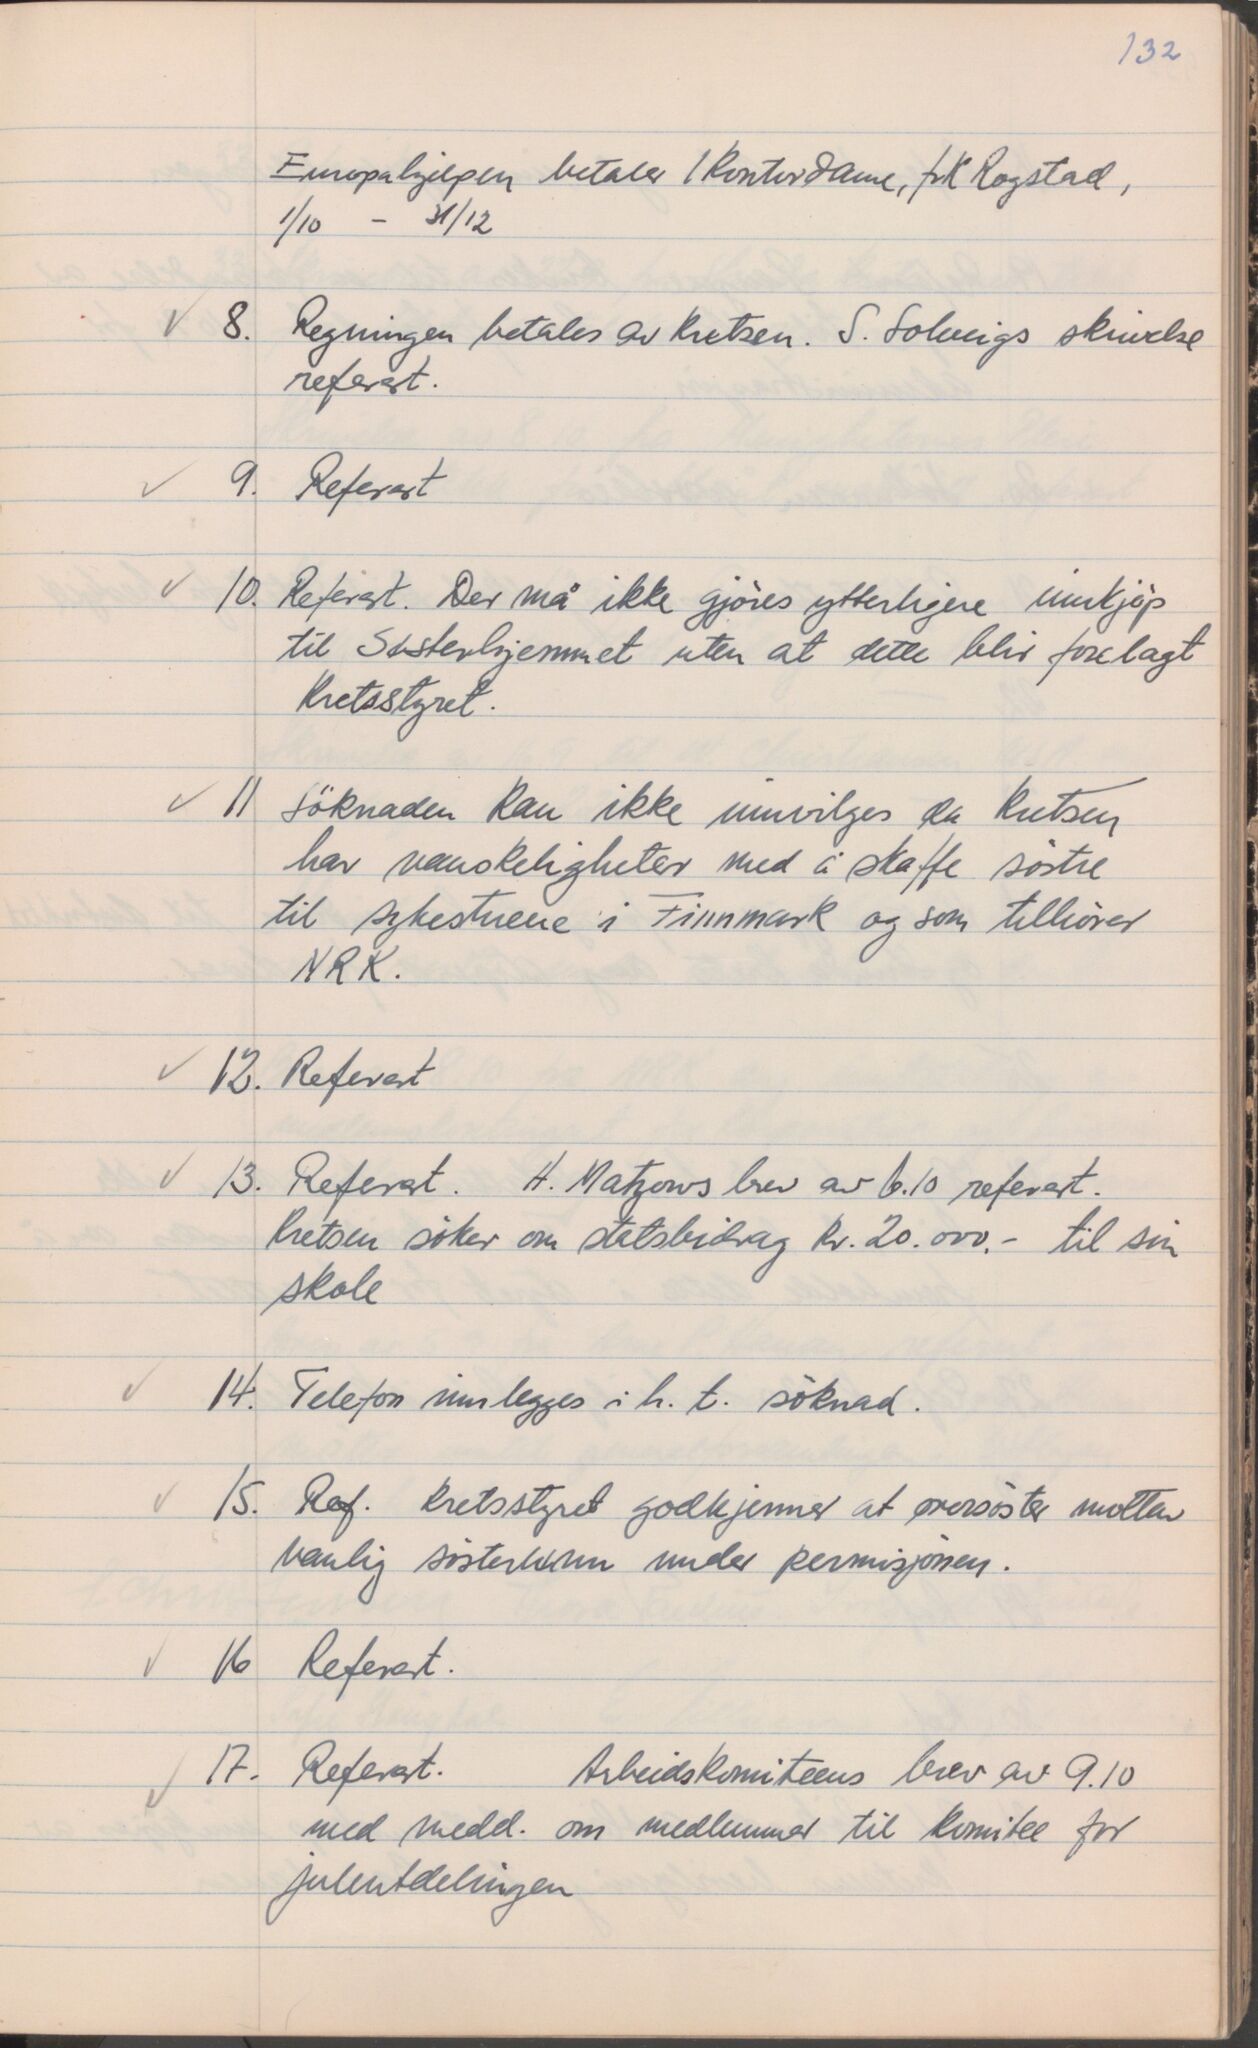 132
Europahjelpen betaler 1 kontordame, frk Rogstad,
1/10 - 31/12
✓ 8. Regningen betales av kretsen. S. Solveigs skrivelse
referert.
✓ 9. Referert
✓ 10. Referert. Der må ikke gjöres ytterligere innkjöp
til Sösterhjemmet uten at dette blir forelagt
Kretsstyret.
✓ 11 Söknaden kan ikke innvilges da kretsen
har vanskeligheter med å skaffe söstre
til sykestuene i Finnmark og som tilhörer
NRK.
✓ 12. Referert
✓ 13. Referert. H. Matzows brev av 6.10 referert.
Kretsen söker om statsbidrag kr. 20.000.- til sin
skole
✓ 14. Telefon innlegges i h. t. söknad.
✓ 15. Ref. Kretsstyret godkjenner at oversöster mottar
vanlig sösterlönn under permisjonen.
✓ 16 Referert.
✓ 17. Referert. Arbeidskomiteens brev av 9.10
med medd. om medlemmer til komitee for
juleutdelingen